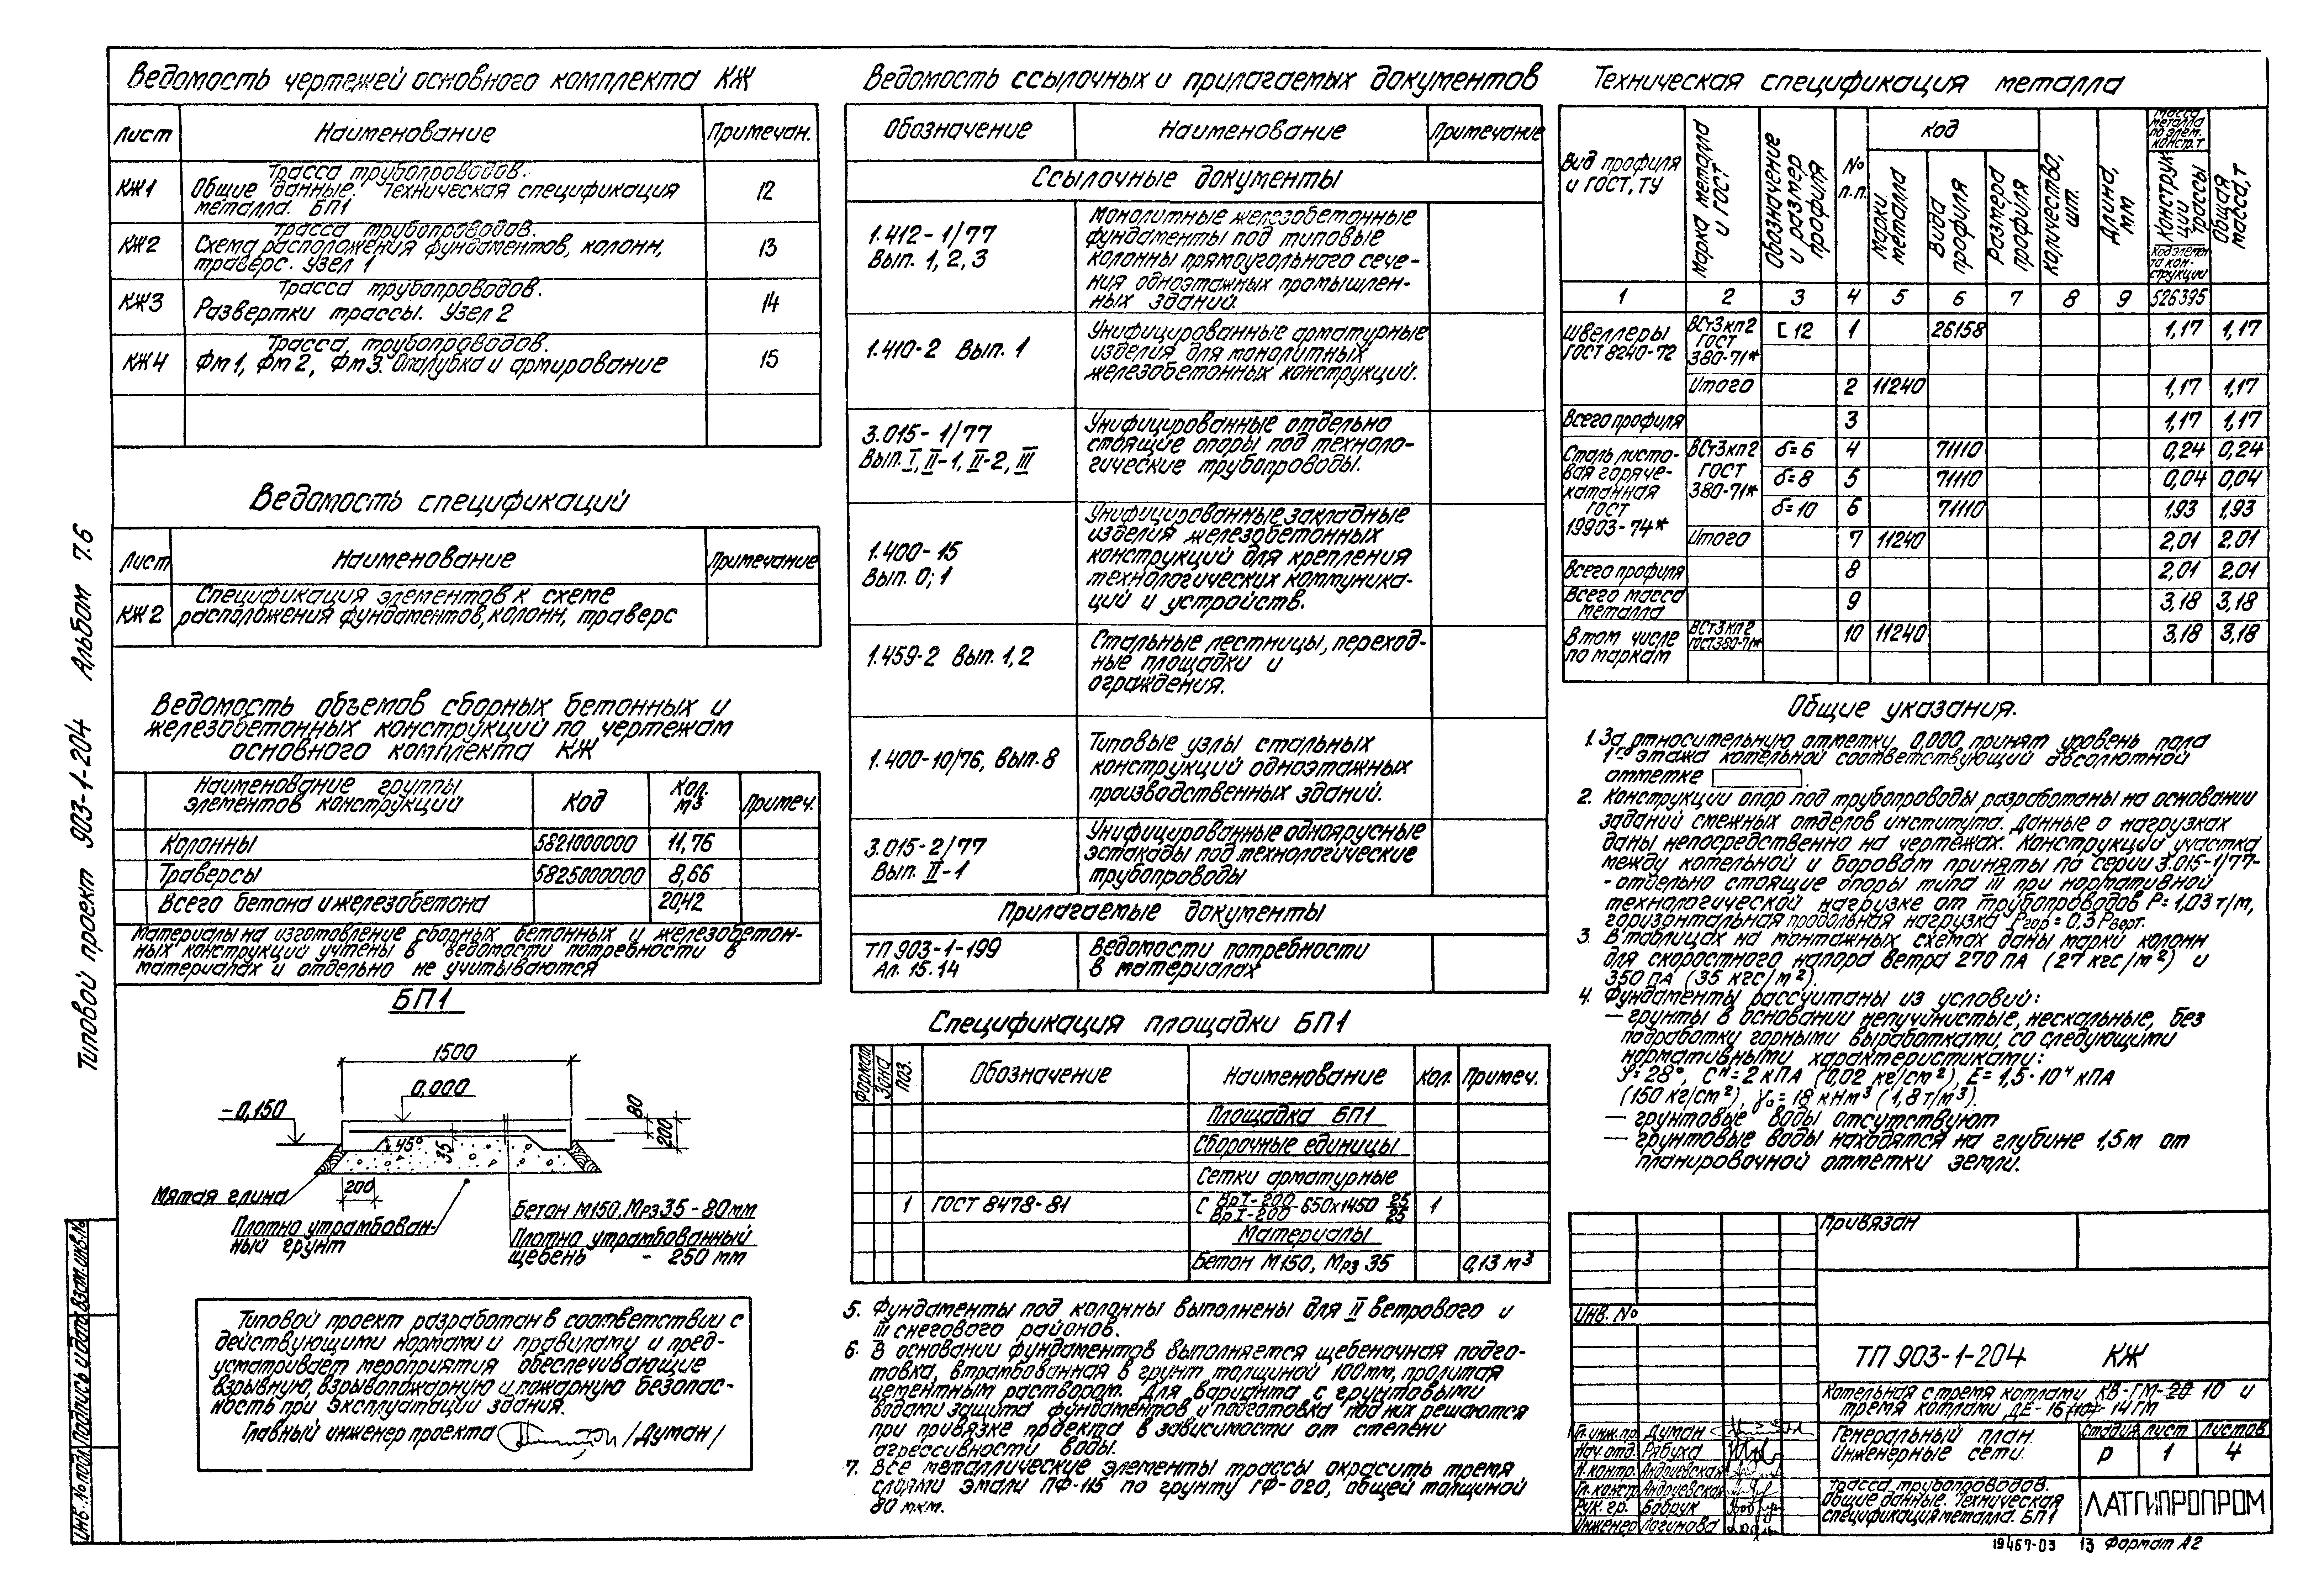 Ведомость чертежей основного комплекта КЖ
Лист Наименование Примечан.
КЖ1 Трасса трубопроводов. Общие данные. Техническая спецификация металла. БП1 12
КЖ2 Трасса трубопроводов. Схема расположения фундаментов, колонн, траверс. Узел 1 13
КЖ3 Трасса трубопроводов. Развертки трассы. Узел 2 14
КЖ4 Трасса трубопроводов. Фм1, Фм2, Фм3. Опалубка и армирование 15
Ведомость спецификаций
Лист Наименование Примечание
КЖ2 Спецификация элементов к схеме расположения фундаментов, колонн, траверс
Ведомость объемов сборных бетонных и
железобетонных конструкций по чертежам
основного комплекта КЖ
Наименование группы элементов конструкций Код Кол. м3 Примеч.
Колонны 5821000000 11,76
Траверсы 5825000000 8,66
Всего бетона и железобетона 20,42
Материалы на изготовление сборных бетонных и железобетон-
ных конструкции учтены в ведомости потребности в
материалах и отдельно не учитываются
БП1
1500
0,000
-0,150
80
200
45°
35
200
Мятая глина
Плотно утрамбован-
ный грунт
Бетон М150, Мрз 35 - 80мм
Плотно утрамбованный
щебень - 250 мм
Типовой проект разработан в соответствии с
действующими нормами и правилами и пред-
усматривает мероприятия обеспечивающие
взрывную, взрывопожарную и пожарную безопас-
ность при эксплуатации здания.
Главный инженер проекта /Думан/
Ведомость ссылочных и прилагаемых документов
Обозначение Наименование Примечание
Ссылочные документы
1.412-1/77 Вып. 1, 2, 3 Монолитные железобетонные
фундаменты под типовые
колонны прямоугольного сече-
ния одноэтажных промышлен-
ных зданий.
1.410-2 Вып. 1 Унифицированные арматурные
изделия для монолитных
железобетонных конструкций.
3.015-1/77 Вып. I, II-1, II-2, III Унифицированные отдельно
стоящие опоры под техноло-
гические трубопроводы.
1.400-15 Вып. 0; 1 Унифицированные закладные
изделия железобетонных
конструкций для крепления
технологических коммуника-
ций и устройств.
1.459-2 Вып. 1,2 Стальные лестницы, переход-
ные площадки и
ограждения.
1.400-10/76, Вып. 8 Типовые узлы стальных
конструкций одноэтажных
производственных зданий.
3.015-2/77 Вып. II-1 Унифицированные одноярусные
эстакады под технологические
трубопроводы
Прилагаемые документы
ТП 903-1-199 Ал. 15.14 Ведомости потребности
в материалах
Спецификация площадки БП1
Формат Зона Поз. Обозначение Наименование Кол. Примеч.
Площадка БП1
Сборочные единицы
Сетки арматурные
1 ГОСТ 8478-81 С ВрI-200/ВрI-200 650х1450 25/25 1
Материалы
Бетон М150, Мрз 35 0,13 м3
5. Фундаменты под колонны выполнены для II ветрового и
III снегового районов.
6. В основании фундаментов выполняется щебеночная подго-
товка, втрамбованная в грунт толщиной 100мм, пролитая
цементным раствором. Для варианта с грунтовыми
водами защита фундаментов и подготовка под них решаются
при привязке проекта в зависимости от степени
агрессивности воды.
7. Все металлические элементы трассы окрасить тремя
слоями эмали ПФ-115 по грунту ГФ-020, общей толщиной
80 мкм.
Техническая спецификация металла
Вид профиля и ГОСТ, ТУ Марка металла и ГОСТ Обозначение и размер профиля № п.п. Код Марки металла Вида профиля Размера профиля Количество, шт. Длина, мм Масса металла по элем. констр. т Конструкции трассы Код элемента конструкции Общая масса, т
1 2 3 4 5 6 7 8 9 526395
Швеллеры ГОСТ 8240-72 ВСт3кп2 ГОСТ 380-71* С 12 1 26158 1,17 1,17
Итого 2 11240 1,17 1,17
Всего профиля 3 1,17 1,17
Сталь листо-
вая горяче-
катанная ГОСТ 19903-74* ВСт3кп2 ГОСТ 380-71* δ=6 4 71110 0,24 0,24
δ=8 5 71110 0,04 0,04
δ=10 6 71110 1,93 1,93
Итого 7 11240 2,01 2,01
Всего профиля 8 2,01 2,01
Всего масса металла 9 3,18 3,18
В том числе по маркам ВСт3кп2 ГОСТ380-71* 10 11240 3,18 3,18
Общие указания.
1. За относительную отметку 0,000 принят уровень пола
1го этажа котельной соответствующий абсолютной
отметке
2. Конструкции опор под трубопроводы разработаны на основании
заданий смежных отделов института. Данные о нагрузках
даны непосредственно на чертежах. Конструкции участка
между котельной и боровом приняты по серии 3.015-1/77-
-отдельно стоящие опоры типа III при нормативной
технологической нагрузке от трубопроводов Р=1,03 т/м,
горизонтальная продольная нагрузка Ргор=0.3 Рверт.
3. В таблицах на монтажных схемах даны марки колонн
для скоростного напора ветра 270 ПА (27 кгс/м2) и
350 ПА (35 кгс/м2).
4. Фундаменты рассчитаны из условий:
— грунты в основании непучинистые, нескальные, без
подработки горными выработками, со следующими
нормативными характеристиками:
φ=28°, Сн=2 кПА (0,02 кг/см2), Е=1,5·10⁴ кПА
(150 кг/см2), γ₀=18 кНм3 (1,8 т/м3).
— грунтовые воды отсутствуют
— грунтовые воды находятся на глубине 1,5м от
планировочной отметки земли.
Привязан
Инв. №
ТП 903-1-204 КЖ
Котельная с тремя котлами КВ-ГМ-20 10 и
тремя котлами ДЕ-16 14ГМ
Гл.инж.пр Думан
Нач.отд. Рябуха
Н.контр. Андриевская
Гл.констр. Андриевская
Рук.гр. Бобрук
Инженер Логинова
Генеральный план.
Инженерные сети.
Стадия Лист Листов
Р 1 4
Трасса трубопроводов.
Общие данные. Техническая
спецификация металла. БП1
ЛАТГИПРОПРОМ
19467-03 13 Формат А2
Типовой проект 903-1-204 Альбом 7.6
Инв.№ подл. Подпись и дата Взам.инв.№